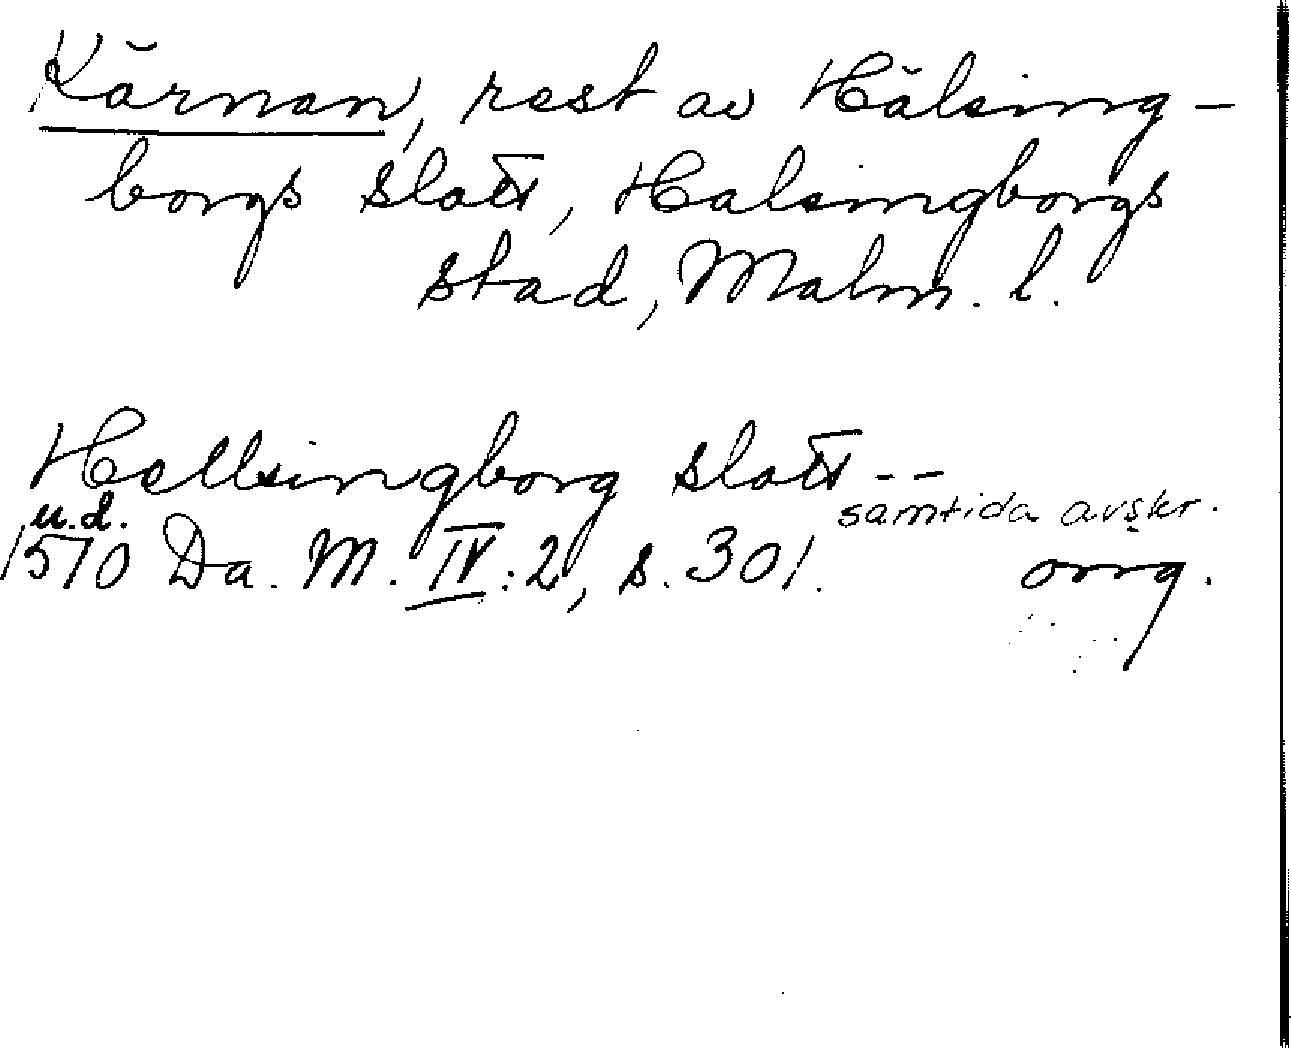 Kärnan, rest av Hälsing-
borgs slott, Halsingborgs
stad, Malm. l.
Hellsingborg slott --
samtida avskr.
u.d.
1510 Da. M. IV:2, s. 301. orig.